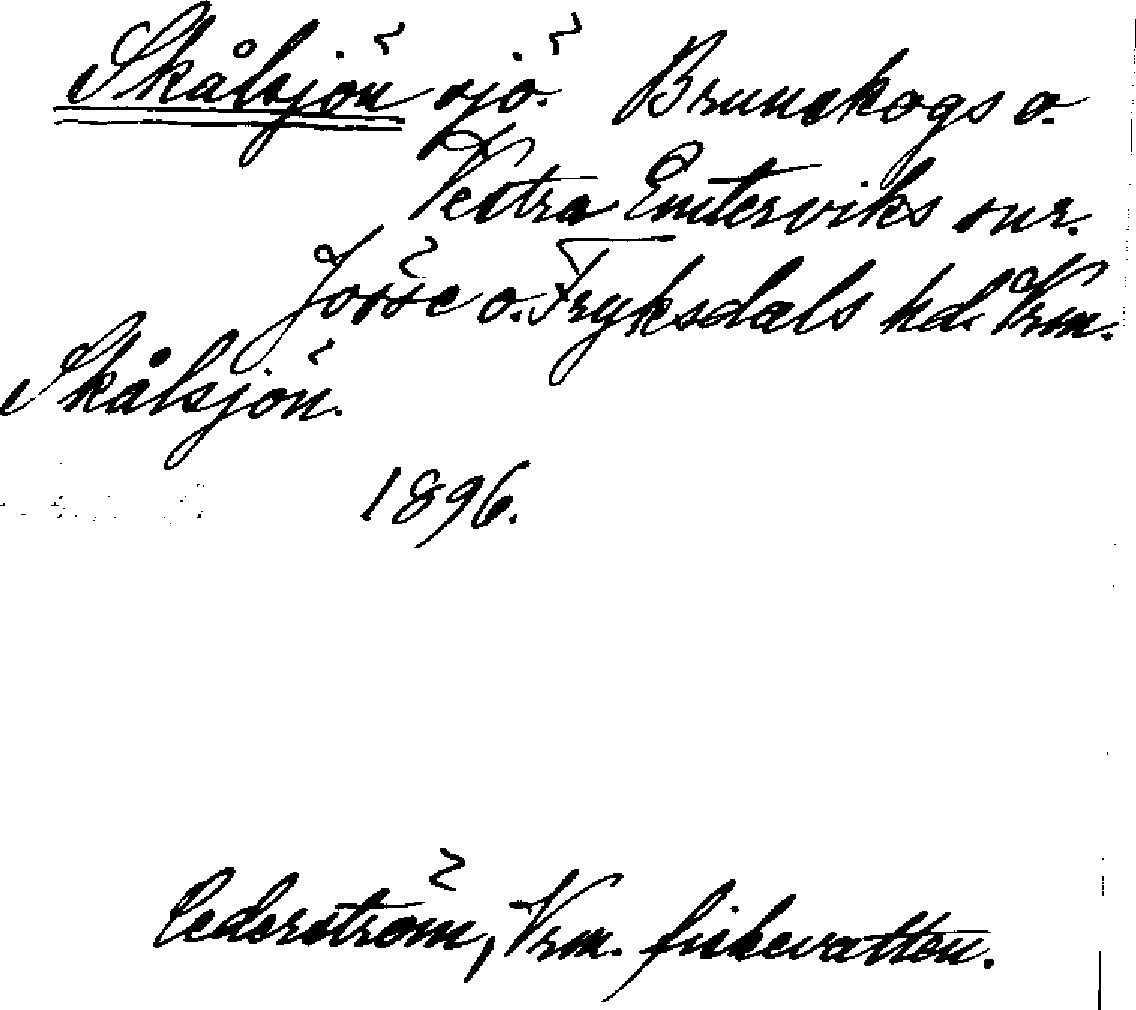 Skålsjön sjö. Brunskogs o.
Vestra Emterviks snr.
Jösse o. Fryksdals hd. Vrm.
Skålsjön.
1896.
Cederström, Vrm. fiskevatten.